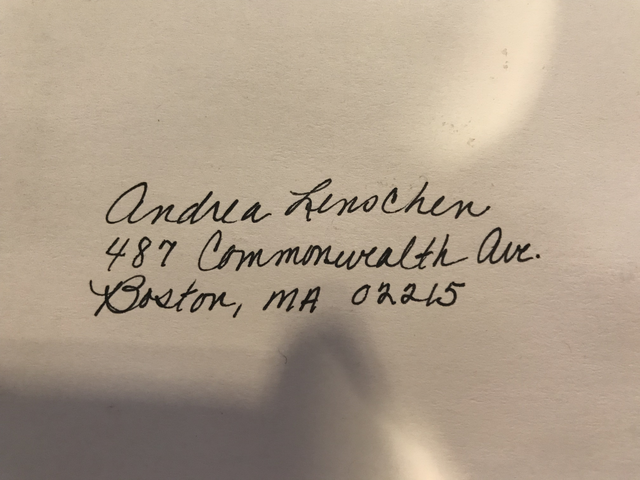 Andrea Lenschen
487 Commonwealth Ave.
Boston, MA 02215